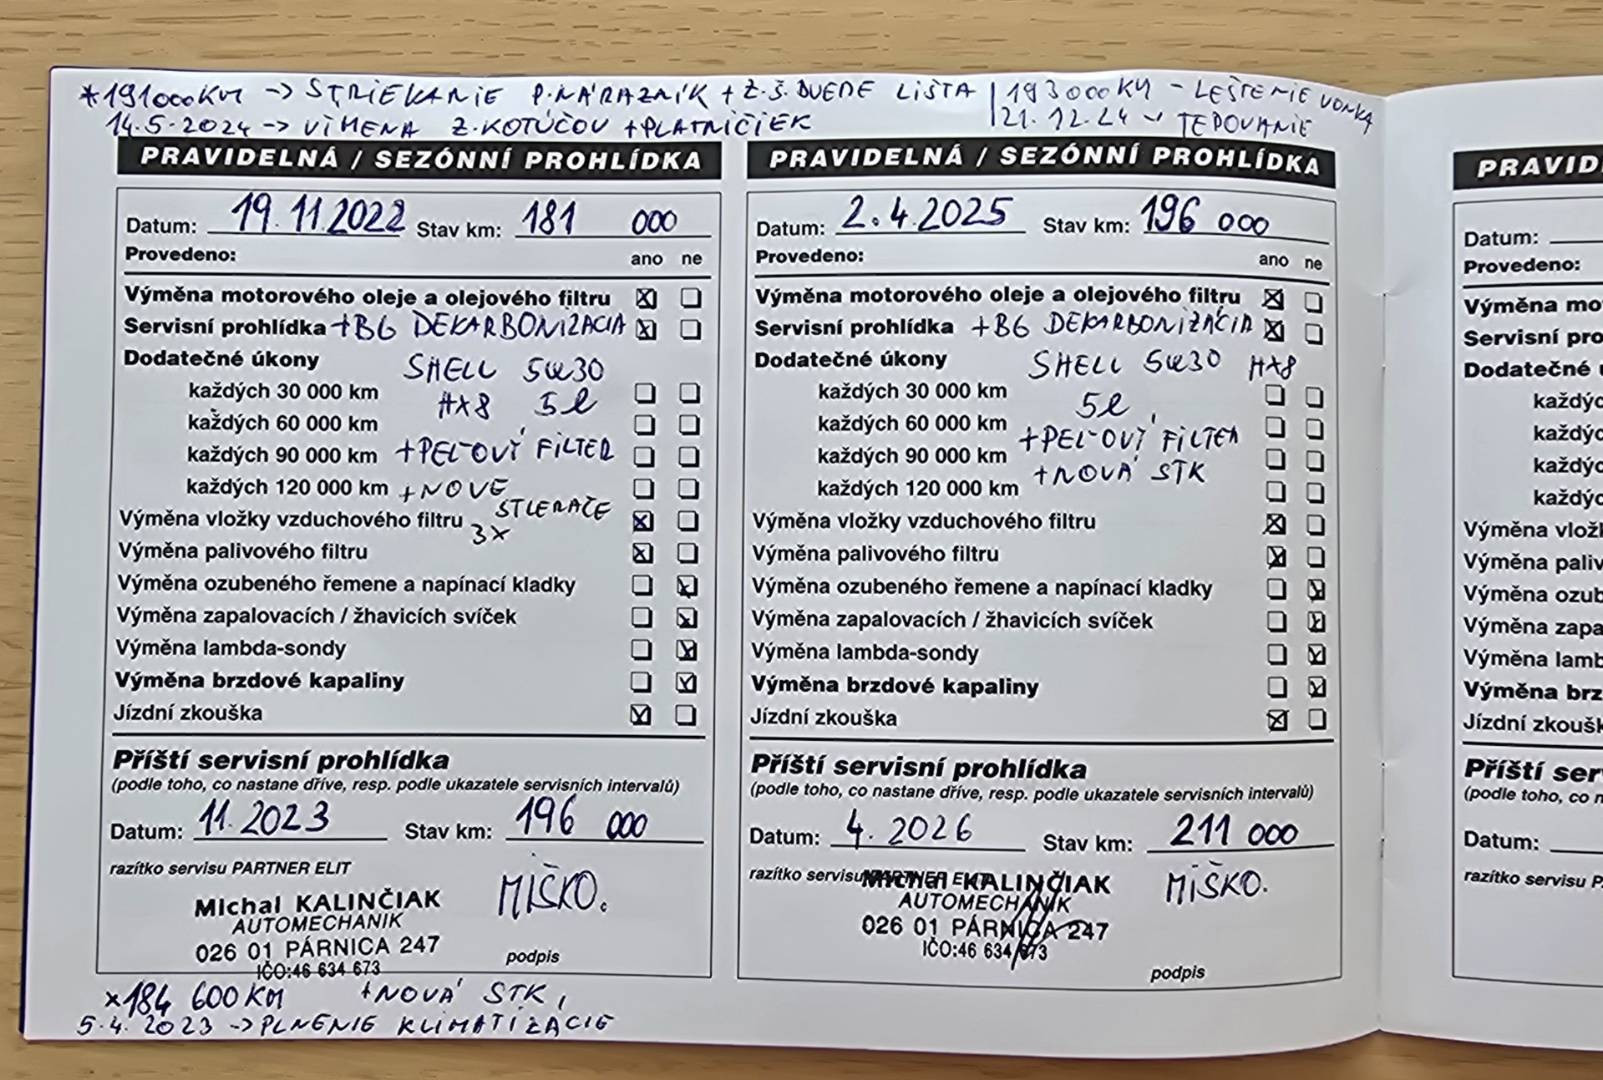 *191000KM -> STRIEKANIE P.NÁRAZNÍK + Z.Š. DVERE LIŠTA | 193000KM - LEŠTENIE VONKA
14.5.2024 -> VÝMENA Z.KOTÚČOV + PLATNIČIEK | 21.12.24 -> TEPOVANIE
PRAVIDELNÁ / SEZÓNNÍ PROHLÍDKA
Datum: 19.11.2022 Stav km: 181 000
Provedeno: ano ne
Výměna motorového oleje a olejového filtru
Servisní prohlídka +BG DEKARBONIZACIA
Dodatečné úkony SHELL 5W30
každých 30 000 km HX8 5l
každých 60 000 km
každých 90 000 km +PEĽOVÝ FILTER
každých 120 000 km +NOVÉ STIERAČE
Výměna vložky vzduchového filtru 3x
Výměna palivového filtru
Výměna ozubeného řemene a napínací kladky
Výměna zapalovacích / žhavicích svíček
Výměna lambda-sondy
Výměna brzdové kapaliny
Jízdní zkouška
Příští servisní prohlídka
(podle toho, co nastane dříve, resp. podle ukazatele servisních intervalů)
Datum: 11.2023 Stav km: 196 000
razítko servisu PARTNER ELIT
Michal KALINČIAK
AUTOMECHANIK
026 01 PÁRNICA 247
IČO:46 634 673
MIŠKO.
podpis
x184 600KM +NOVÁ STK,
5.4.2023 -> PLNENIE KLIMATIZÁCIE
PRAVIDELNÁ / SEZÓNNÍ PROHLÍDKA
Datum: 2.4.2025 Stav km: 196 000
Provedeno: ano ne
Výměna motorového oleje a olejového filtru
Servisní prohlídka +BG DEKARBONIZÁCIA
Dodatečné úkony SHELL 5W30 HX8
každých 30 000 km 5l
každých 60 000 km +PEĽOVÝ FILTER
každých 90 000 km +NOVÁ STK
každých 120 000 km
Výměna vložky vzduchového filtru
Výměna palivového filtru
Výměna ozubeného řemene a napínací kladky
Výměna zapalovacích / žhavicích svíček
Výměna lambda-sondy
Výměna brzdové kapaliny
Jízdní zkouška
Příští servisní prohlídka
(podle toho, co nastane dříve, resp. podle ukazatele servisních intervalů)
Datum: 4.2026 Stav km: 211 000
razítko servisu PARTNER ELIT
Michal KALINČIAK
AUTOMECHANIK
026 01 PÁRNICA 247
IČO:46 634 673
MIŠKO.
podpis
PRAVID
Datum:
Provedeno:
Výměna mo
Servisní pro
Dodatečné
každýc
každýc
každýc
každýc
Výměna vlož
Výměna paliv
Výměna ozub
Výměna zapa
Výměna lamb
Výměna brz
Jízdní zkouš
Příští ser
(podle toho, co
Datum:
razítko servisu P